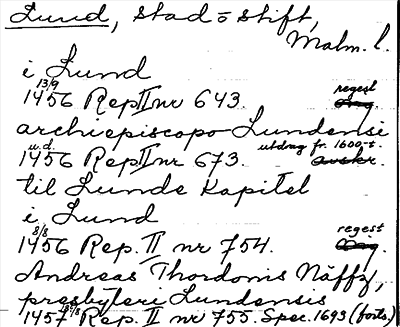 Lund, stad o stift,
Malm. l.
i Lund
13/9 regest
1456 Rep II nr 643.
archiepiscopo Lundensi
u.d. utdrag fr. 1600-t.
1456 Rep II nr 673. avskr.
til Lunde Kapitel
i Lund
8/8 regest
1456 Rep. II nr 754. Orig.
Andreas Thordonis Näffz,
presbyteri Lundensis
1457 Rep. II nr 755. Spec. 1693 (forts.)